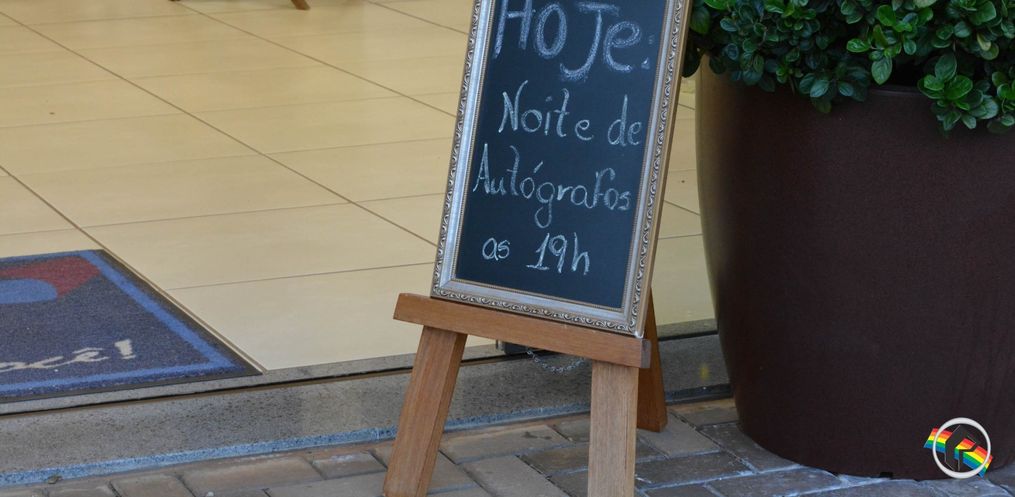 Hoje:
Noite de
Autógrafos
as 19h
ocê!